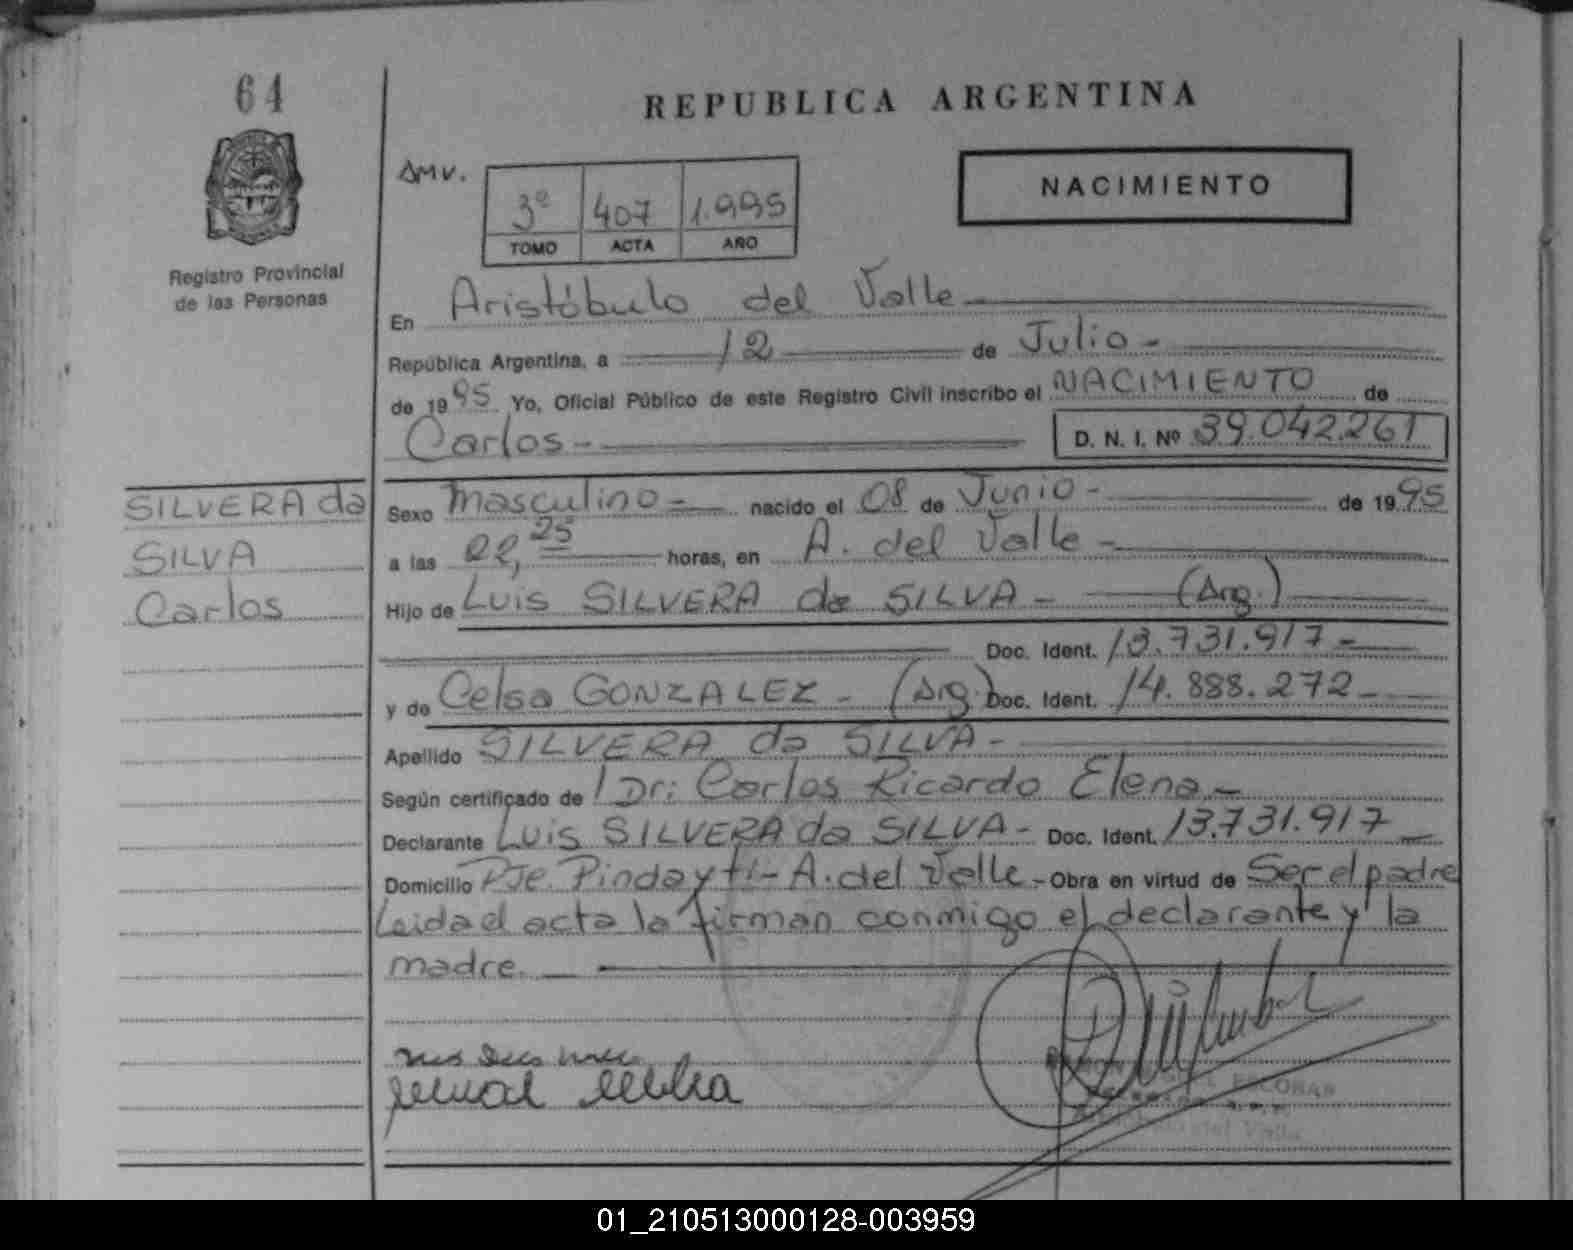 64
REPUBLICA ARGENTINA
AMV.
3º 407 1.995
TOMO ACTA AÑO
NACIMIENTO
Registro Provincial
de las Personas
En Aristóbulo del Valle -
República Argentina, a 12 de Julio -
de 1995 Yo, Oficial Público de este Registro Civil inscribo el NACIMIENTO de
Carlos - D. N. I. Nº 39.042.261
SILVERA da
SILVA
Carlos
Sexo Masculino - nacido el 08 de Junio - de 1995
a las 22,25 horas, en A. del Valle -
Hijo de Luis SILVERA da SILVA - (Arg.)
Doc. Ident. 13.731.917 -
y de Celsa GONZALEZ - (Arg.) Doc. Ident. 14.888.272 -
Apellido SILVERA da SILVA -
Según certificado de Dr: Carlos Ricardo Elena -
Declarante Luis SILVERA da SILVA - Doc. Ident. 13.731.917
Domicilio Pje. Pindayti - A. del Valle - Obra en virtud de Ser el padre
Leida el acta la firman conmigo el declarante y la
madre.
ESCOBAR
del Valle
01_210513000128-003959